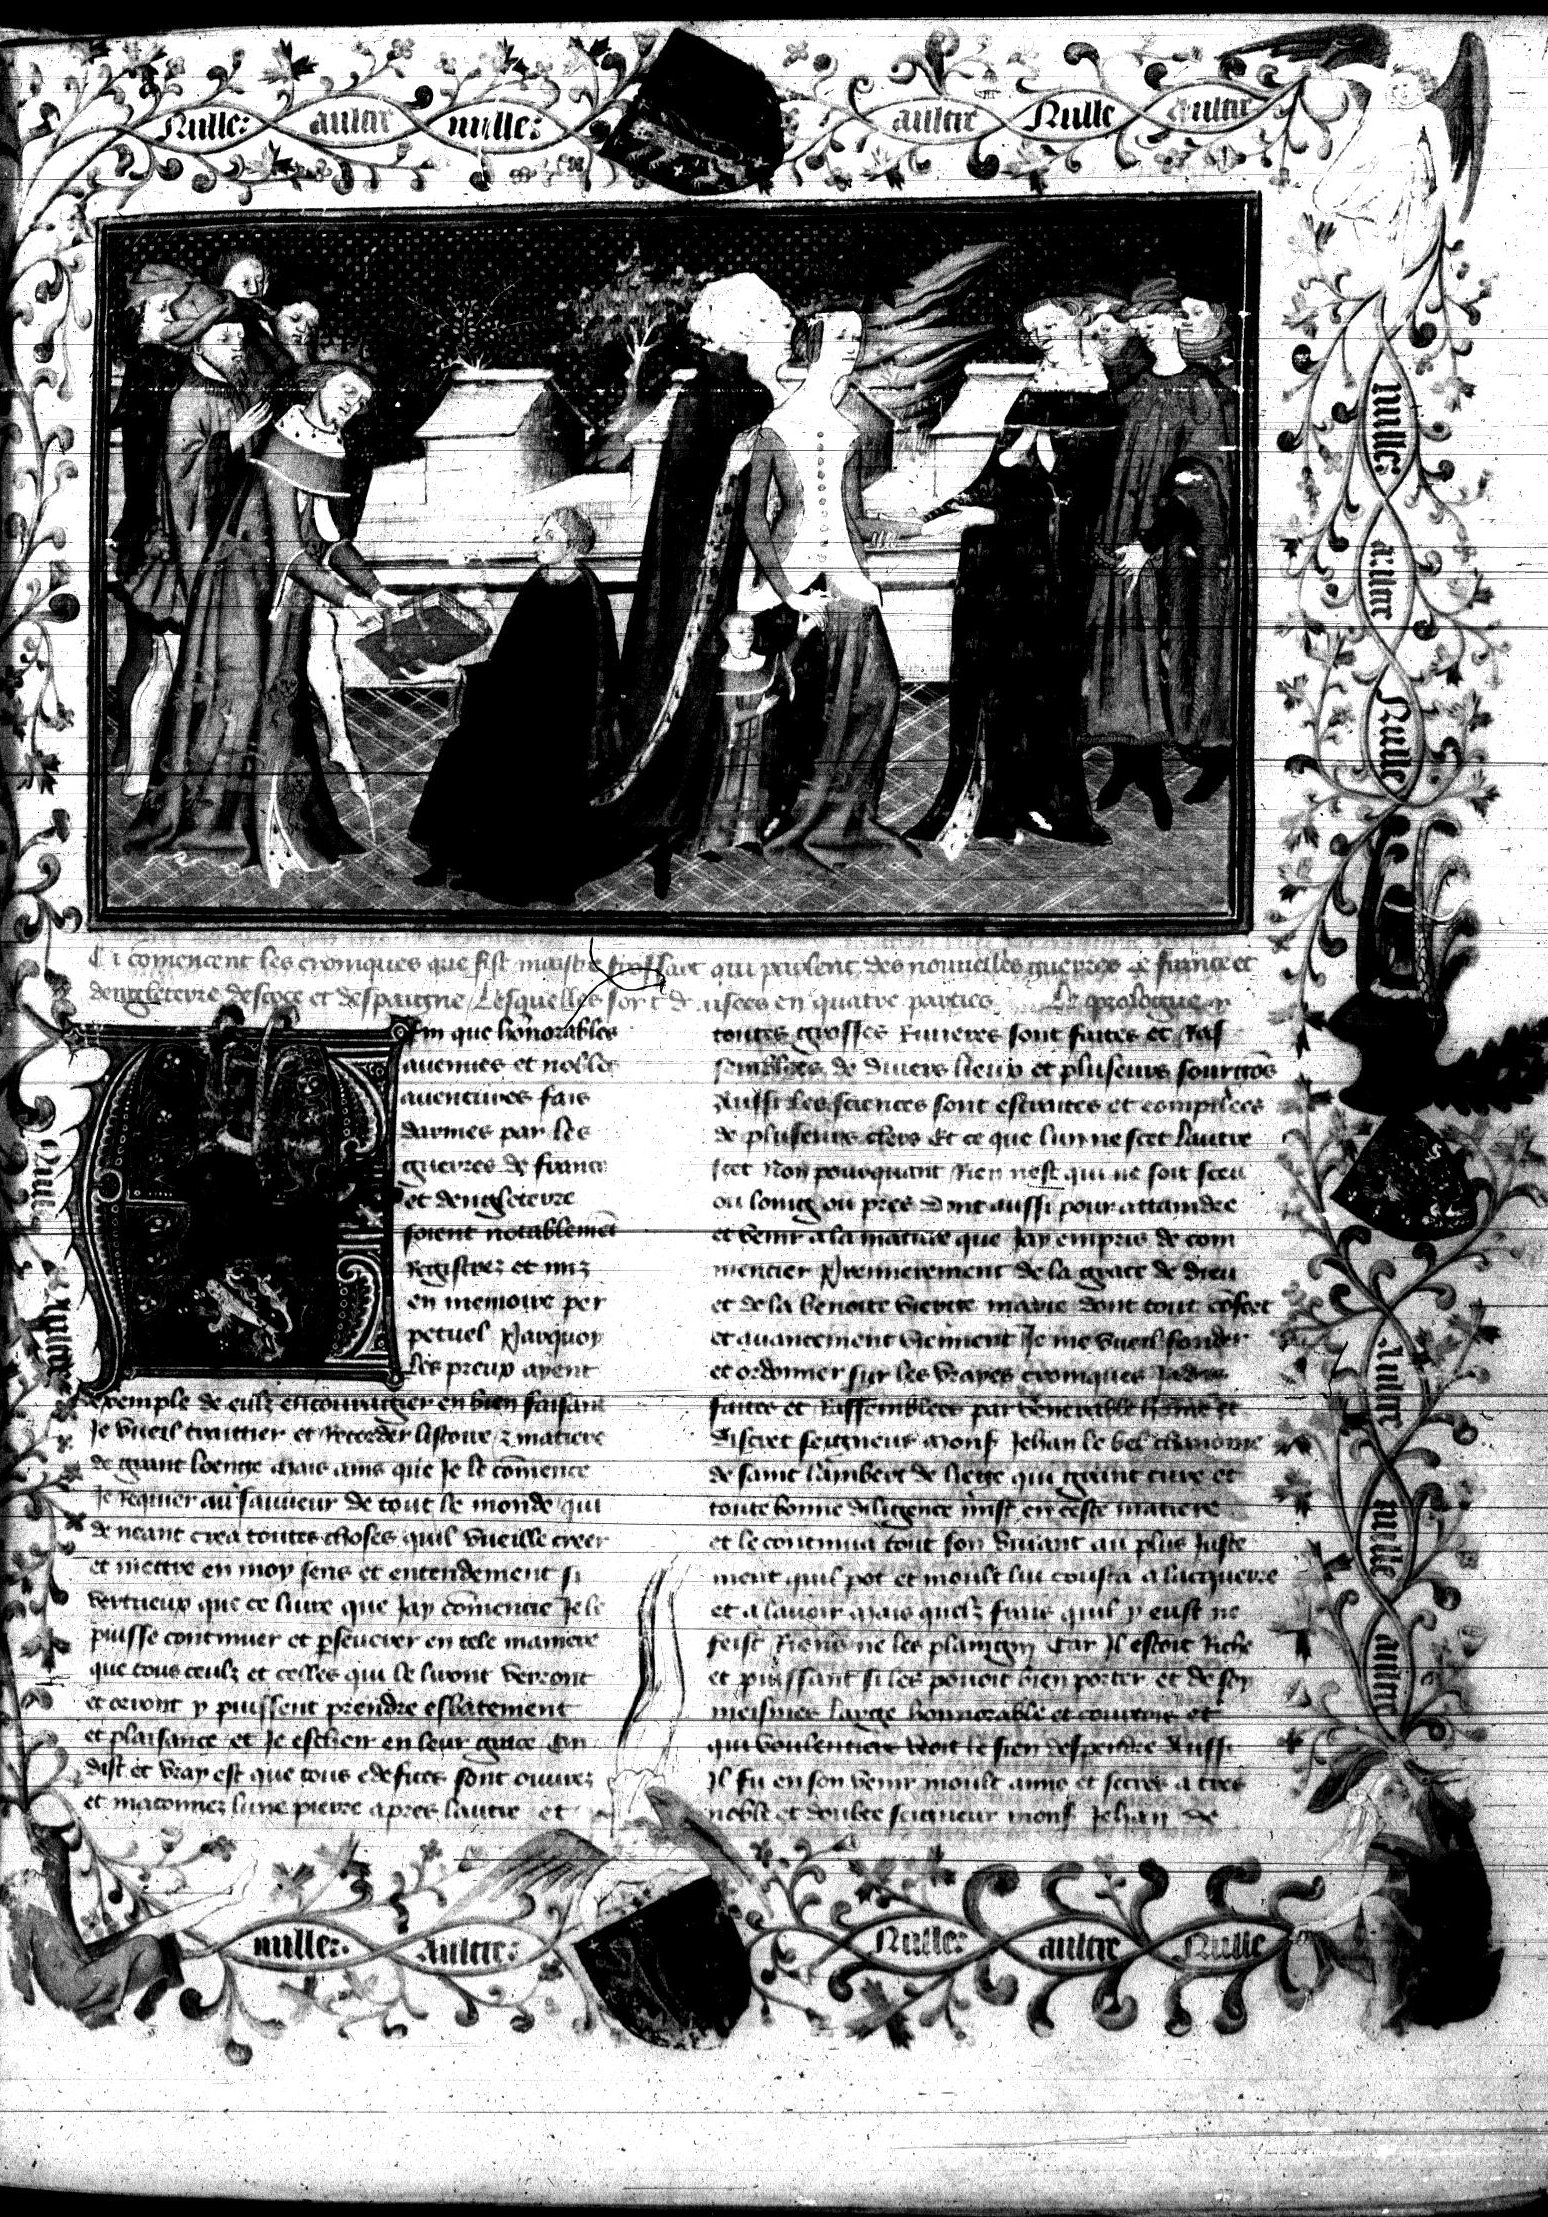 Nulle: aultre nulle: aultre Nulle aultre
nulle: aultre Nulle
Aultre nulle aultre
Ci comencent les croniques que fist maistre froissart qui parlent des nouvelles guerres de france et
dengleterre descoce et despaigne Lesquelles sont divisees en quatre parties Le prologue
Afin que honnorables
avenues et nobles
aventures fais
darmes par les
guerres de france
et dengleterre
soient notablement
Registrez et miz
en memoire per
petuel Parquoy
les preux ayent
exemple de eulz encouraigier en bien faisant
Je vueil traittier et Recorder listoire z matiere
de grant loenge Mais ains que Je le comence
Je Requier au sauveur de tout le monde qui
de neant crea toutes choses quil vueille creer
et mettre en moy sens et entendement si
vertueux que ce livre que Jay comencie Je le
puisse continuer et perseverer en tele maniere
que tous ceulz et celles qui le liront verront
et orront y puissent prendre esbatement
et plaisance et Je escheir en leur grace On
dist et vray est que tous edefices sont ouvrez
et maconnez lune pierre apres lautre et
toutes grosses Rivieres sont faites et Ras
semblees de divers lieux et pluseurs sourgons
Aussi les sciences sont estraites et compilees
de pluseurs clers Et ce que lun ne scet lautre
scet Non pourquant Rien nest qui ne soit sceu
ou loing ou pres Dont aussi pour attaindre
et venir a la matiere que Jay empris de com
mencier Premierement de la grace de dieu
et de la benoite vierge marie dont tout confort
et avancement viennent Je me vueil fonder
et ordonner sur les vrayes croniques Jadis
faites et Rassemblees par venerable homme et
discret seigneur Mons Jehan le bel chanoine
de saint lambert de liege qui grant cure et
toute bonne diligence mist en ceste matiere
et le continua tout son vivant au plus Juste
ment quil pot et moult lui cousta a lacquerre
et a lavoir Mais quelz frais quil y eust ne
feist Riens ne les plaingny Car Il estoit Riche
et puissant si les povoit bien porter et de soy
meismes large honnorable et courtois et
qui voulentiers veoit le sien despendre Aussi
Il fu en son venir moult ame et secres a tres
noble et doubte seigneur mons Jehan de
nulle: Aultre: Nulle: aultre Nulle